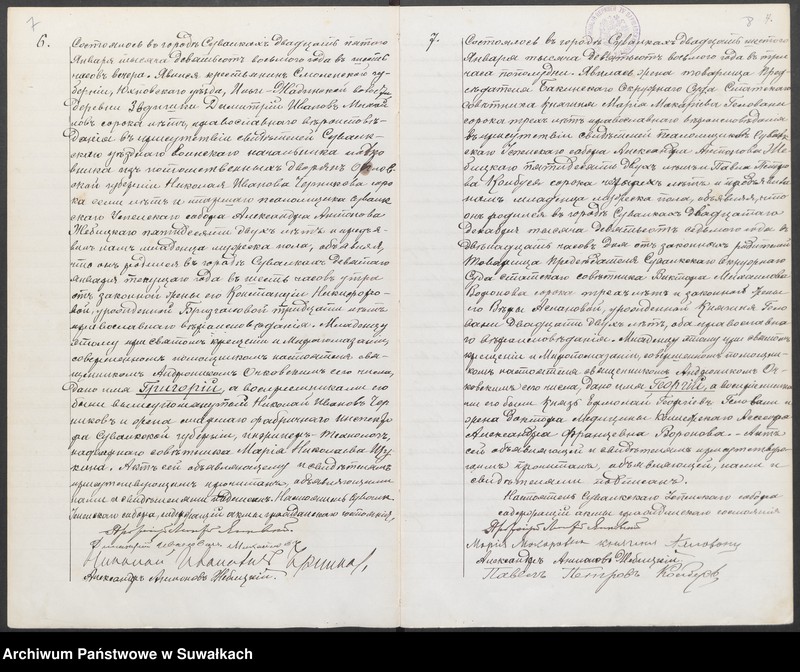 7
6.
Состоялось въ городѣ Сувалкахъ двадцать пятого
Января тысяча девятьсотъ восьмого года въ шесть
часовъ вечера. Явился крестьянинъ Смоленской гу-
берніи, Юхновскаго уѣзда,
деревни Димитрій Ивановъ
сорока лѣтъ, православнаго вѣроисповѣ-
данія въ присутствіи свидѣтелей Сувалк-
скаго уѣзднаго воинскаго начальника
изъ потомственныхъ дворянъ
ской губерніи Николая Иванова Черникова соро-
ка семи лѣтъ и псаломщика Сувалк-
скаго Успенскаго собора Александра Антонова
Жебицкаго пятидесяти двухъ лѣтъ и предъя-
вилъ намъ младенца мужеска пола, объявляя,
что онъ родился въ городѣ Сувалкахъ девятаго
января текущаго года въ шесть часовъ утра
отъ законной жены его Констанціи Никифоро-
вой, урожденной тридцати лѣтъ
православнаго вѣроисповѣданія. Младенцу
этому при святомъ крещеніи и Миропомазаніи,
совершенномъ помощникомъ настоятеля свя-
щенникомъ Андроникомъ сего числа,
дано имя Григорій, а воспріемниками его
были вышеупомянутый Николай Ивановъ Чер-
никовъ и жена младшаго фабричнаго инспекто-
ра Сувалкской губерніи, инженеръ-технолога,
надворнаго совѣтника Марія Николаева
Актъ сей объявляющему и свидѣтелямъ
прочитанъ, объявляющимъ
нами и свидѣтелями подписанъ. Настоятель Сувалк.
Успенскаго собора, содержащій акты гражданскаго состоянія,
Протоіерей
Димитрій
Николай Ивановичъ
Александръ Антоновъ Жебицкій.
8 7.
7.
Состоялось въ городѣ Сувалкахъ двадцать шестого
Января тысяча девятьсотъ восьмого года въ три
часа пополудни. Явилась жена товарища Пред-
сѣдателя Бакинскаго Окружнаго Суда Статскаго
совѣтника княгиня Марія Макаріева Геловани
сорока трехъ лѣтъ православнаго вѣроисповѣданія
въ присутствіи свидѣтелей псаломщиковъ Сувалк-
скаго Успенскаго собора Александра Антонова Же-
бицкаго пятидесяти двухъ лѣтъ и Павла Петро-
ва сорока лѣтъ и предъявила
намъ младенца мужеска пола, объявляя, что
онъ родился въ городѣ Сувалкахъ двадцатаго
Декабря тысяча девятьсотъ седьмого года въ
двѣнадцать часовъ дня отъ законныхъ родителей
Товарища Предсѣдателя Сувалкскаго Окружнаго
Суда статскаго совѣтника Виктора Михаилова
Воронова сорока трехъ лѣтъ и законной жены
его Вѣры урожденной княжны Гело-
вани двадцати двухъ лѣтъ, оба православна-
го вѣроисповѣданія. Младенцу этому при святомъ
крещеніи и Миропомазаніи, совершенномъ помощни-
комъ настоятеля священникомъ Андроникомъ
сего числа, дано имя Георгій, а воспріемника-
ми его были князь Георгіевъ Геловани и
жена доктора Медицины Коллежскаго Ассесора
Александра Францевна Воронова. – Актъ
сей объявляющей и свидѣтелямъ
прочитанъ, объявляющей, нами и
свидѣтелями подписанъ.
Настоятель Сувалкскаго Успенскаго собора
содержащій акты гражданскаго состоянія
Протоіерей
Марія Макаровна княгиня Геловани
Александръ Антоновъ Жебицкій.
Павелъ Петровъ
Archiwum Państwowe w Suwałkach